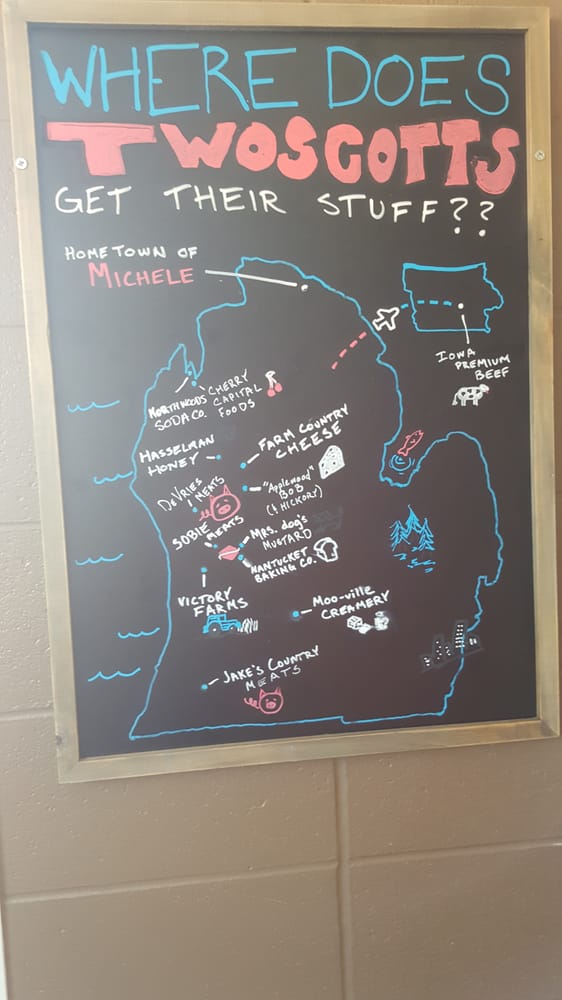 WHERE DOES
TWOSCOTTS
GET THEIR STUFF??
HOMETOWN OF
MICHELE
IOWA
PREMIUM
BEEF
NORTHWOODS
SODA CO.
CHERRY
CAPITAL
FOODS
HASSELMAN
HONEY
FARM COUNTRY
CHEESE
DEVRIES
MEATS
"Applewood"
BOB
(& HICKORY)
SOBIE
MEATS
MRS. dog's
MUSTARD
NANTUCKET
BAKING CO.
VICTORY
FARMS
MOO-VILLE
CREAMERY
JAKE'S COUNTRY
MEATS